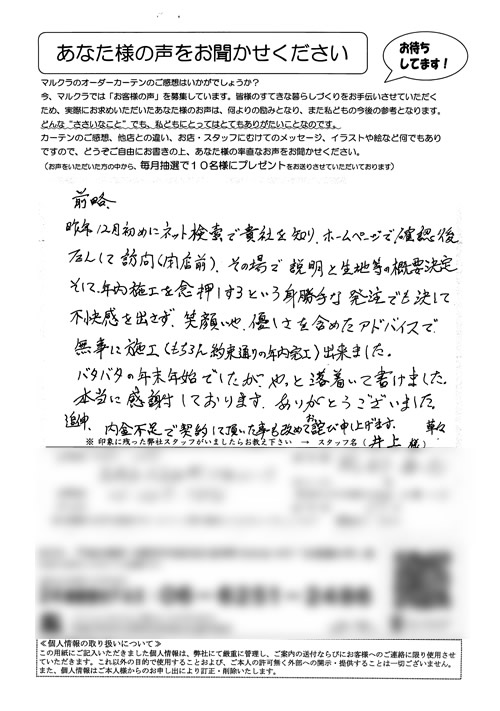 あなた様の声をお聞かせください
お待ち
してます!
マルクラのオーダーカーテンのご感想はいかがでしょうか?
今、マルクラでは「お客様の声」を募集しています。皆様のすてきな暮らしづくりをお手伝いさせていただく
ため、実際にお求めいただいたあなた様のお声は、何よりの励みとなり、また私どもの今後の参考となります。
どんな"ささいなこと"でも、私どもにとってはとてもありがたいことなのです。
カーテンのご感想、他店との違い、お店・スタッフにむけてのメッセージ、イラストや絵など何でもあり
ですので、どうぞご自由にお書きの上、あなた様の率直なお声をお聞かせください。
(お声をいただいた方の中から、毎月抽選で10名様にプレゼントをお送りさせていただいております)
前略
昨年12月初めにネット検索で貴社を知り、ホームページで確認後
だんして訪問(閉店前)、その場で説明と生地等の概要決定
そして、年内施工を念押しするという身勝手な発注でも決して
不快感を出さず、笑顔いや、優しさを含めたアドバイスで
無事に施工(もちろん約束通りの年内完工)出来ました。
バタバタの年末年始でしたが、やっと落着いて書けました。
本当に感謝しております。ありがとうございました。
追伸、内金不足で契約して頂いた事も改めてお詫び申し上げます。 草々
※ 印象に残った弊社スタッフがいましたらお教え下さい → スタッフ名(井上 様)
06-6251-2486
≪個人情報の取り扱いについて≫
この用紙にご記入いただきました個人情報は、弊社にて厳重に管理し、ご案内の送付ならびにお客様へのご連絡に限り使用させ
ていただきます。これ以外の目的で使用することおよび、ご本人の許可無く外部への開示・提供することは一切ございません。
また、個人情報はご本人様からのお申し出により訂正・削除いたします。